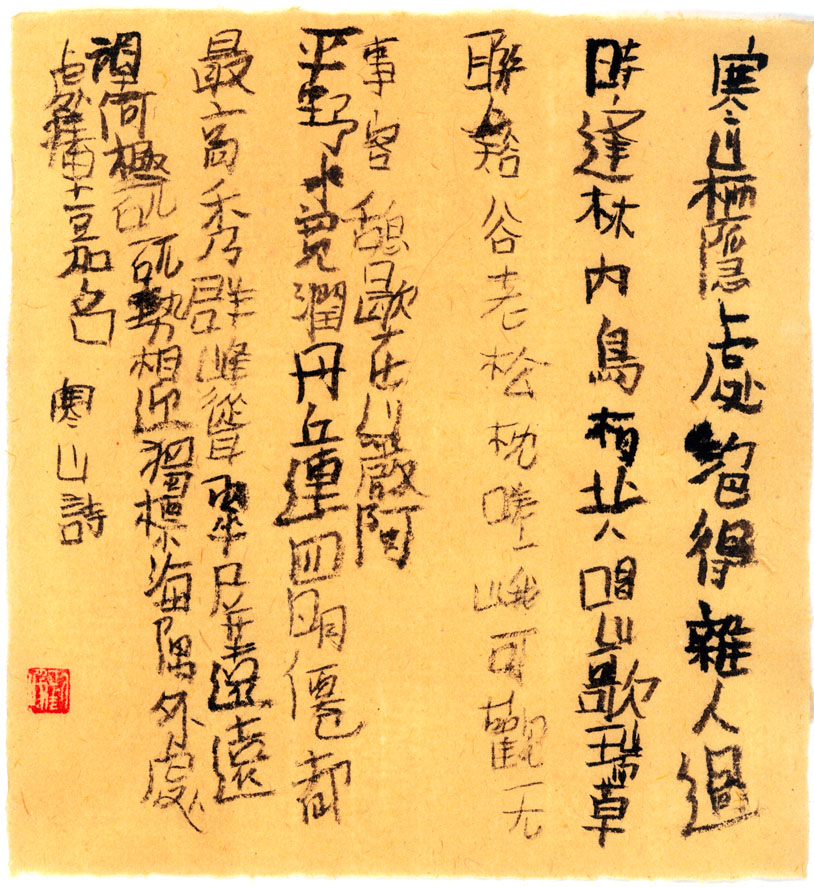 寒山栖隱處絕得雜人過
時逢林內鳥相共唱山歌瑞草
聯谿谷老松枕嵯峨可觀无
事客憩歇在巖阿
平野水寬濶丹丘連四明僊都
最高秀群峰聳翠屏遠遠
望何極矹矹勢相迎獨標海隅外處
處播嘉名 寒山詩